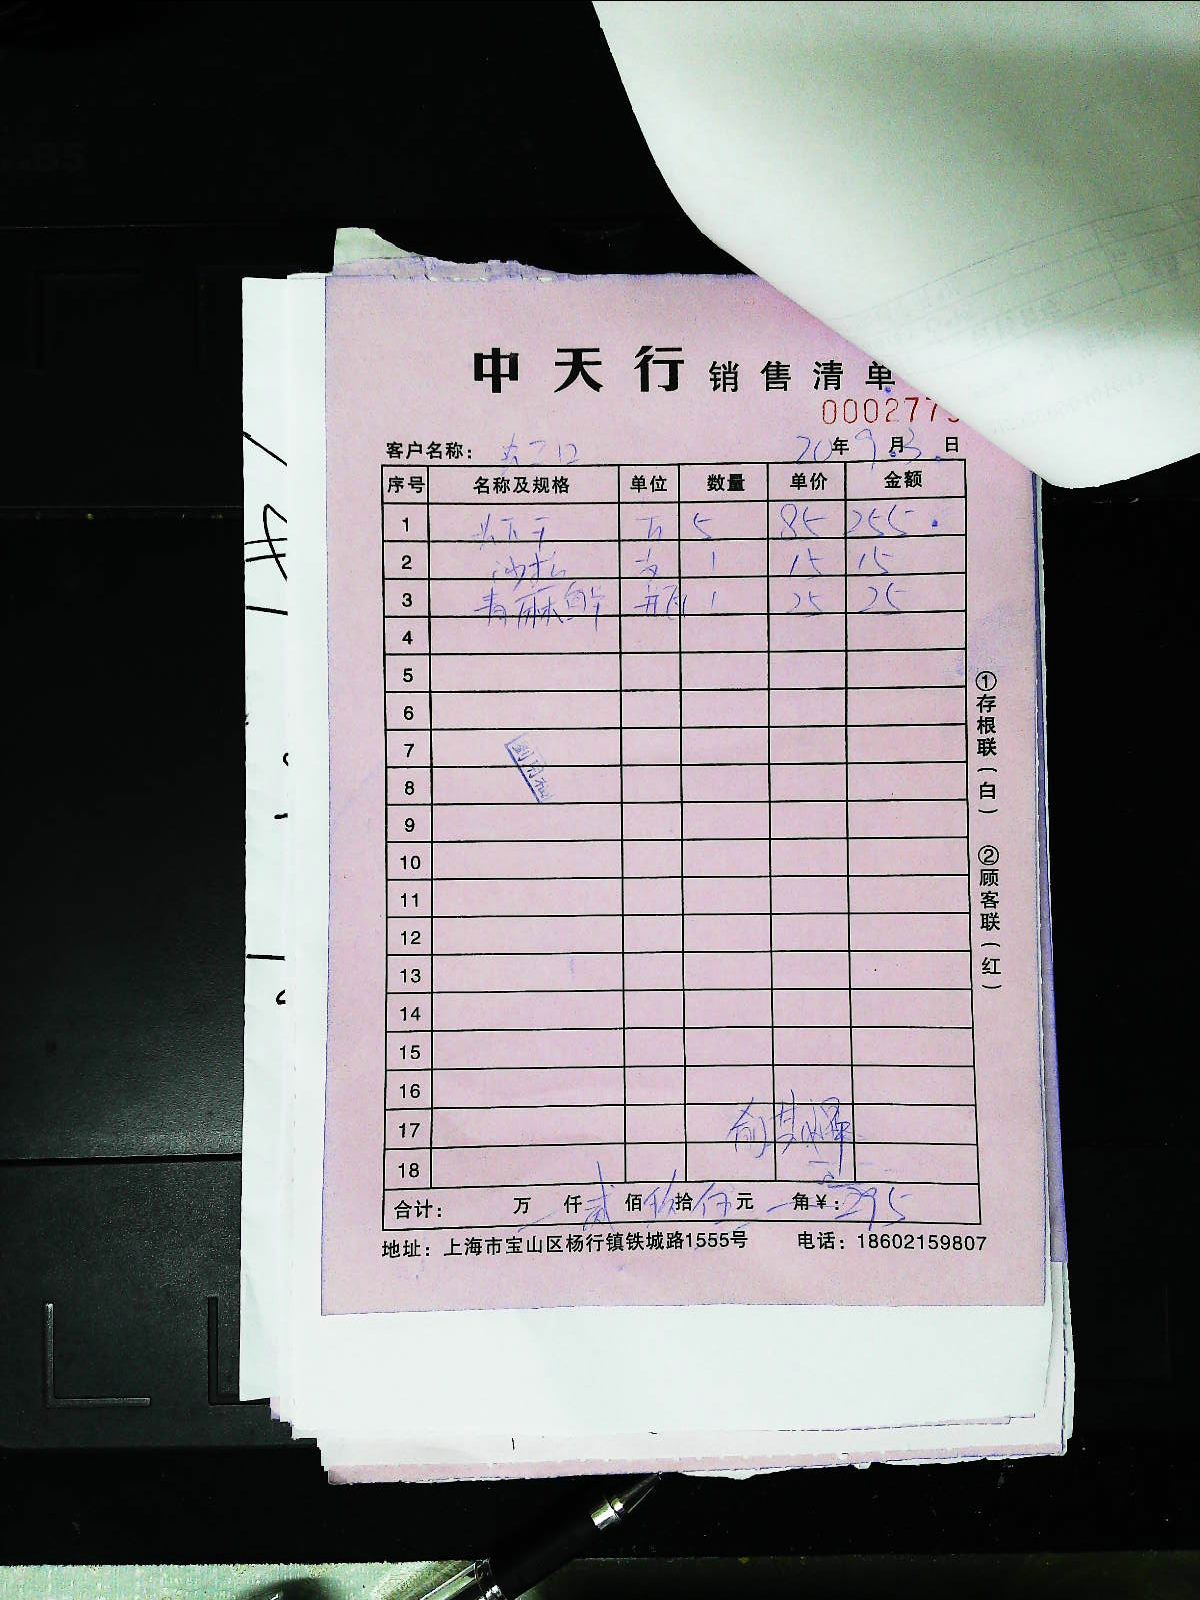 中天行 销售清单
000277
客户名称: 20年9月3日
序号 名称及规格 单位 数量 单价 金额
1 5 85 255.
2 1 15 15
3 青麻鲜 瓶 1 25 25
4
5
6
7
8
9
10
11
12
13
14
15
16
17
18
合计: 万 仟贰佰玖拾伍元 角¥:295
地址:上海市宝山区杨行镇铁城路1555号 电话:18602159807
①存根联(白) ②顾客联(红)